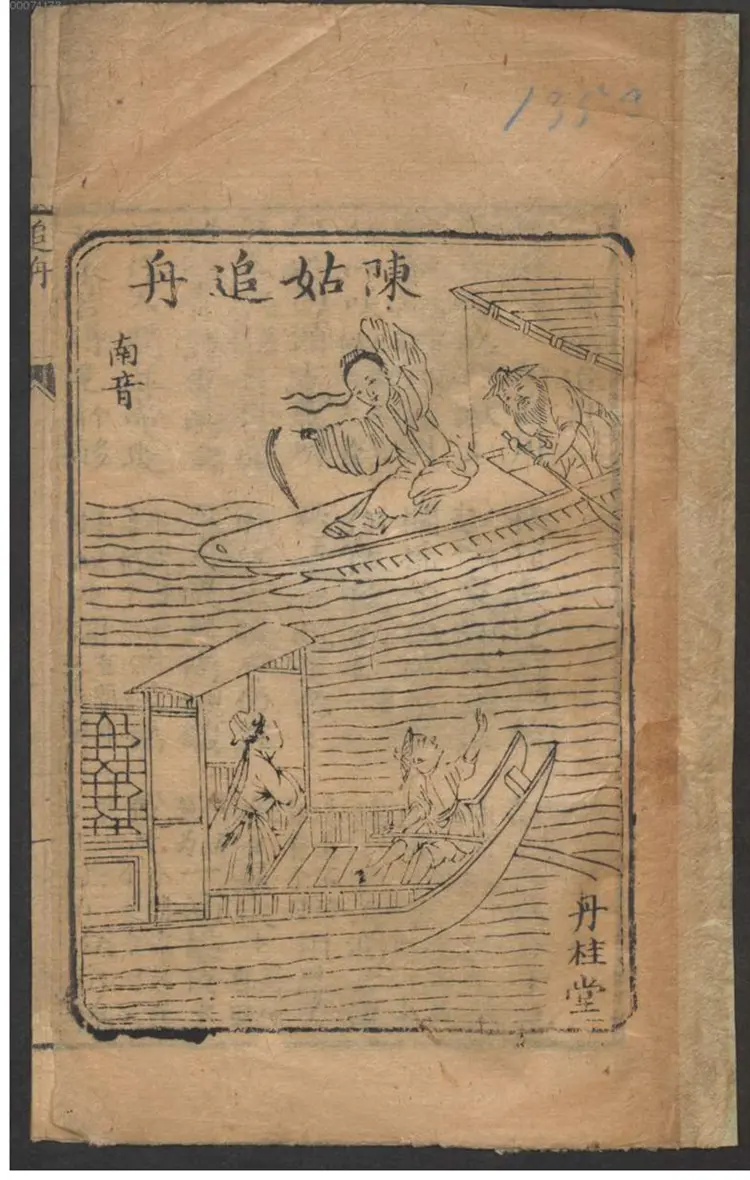 00074173
陳姑追舟
南音
追舟
丹桂堂